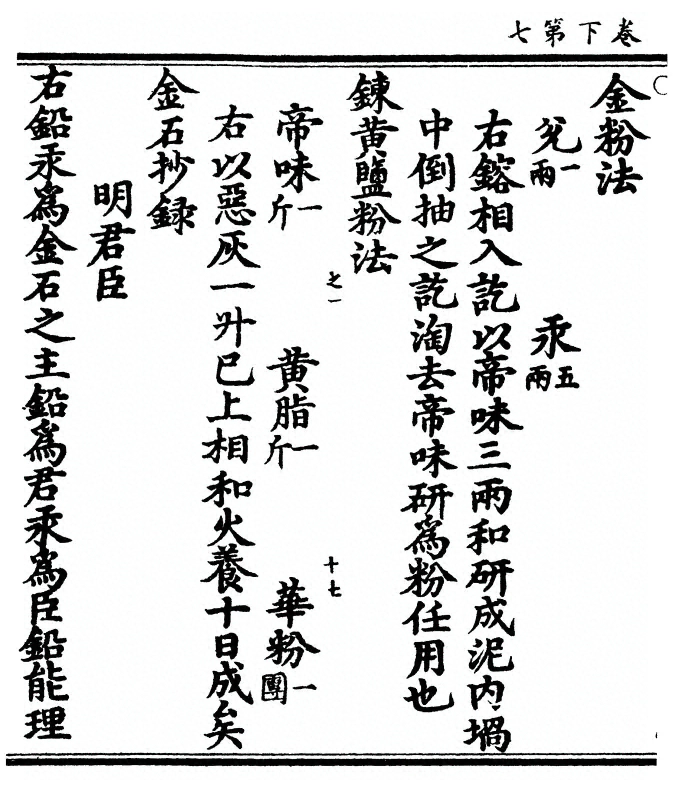 卷下第七
金粉法
兊一兩 汞五兩
右鎔相入訖以帝味三兩和研成泥内堝
中倒抽之訖淘去帝味研爲粉任用也
鍊黃鹽粉法
之一 十七
帝味一斤 黃脂一斤 華粉一團
右以惡灰一升已上相和火養十日成矣
金石抄録
明君臣
右鉛汞爲金石之主鉛爲君汞爲臣鉛能理